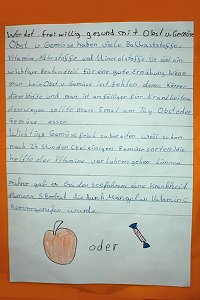 Werdet freiwillig gesund mit Obst u. Gemüse
Obst u Gemüse haben viele Ballaststoffe,
Vitamine, Nährstoffe und Mineralstoffe. Sie sind ein
wichtiger Bestandteil für eine gute Ernährung. Wenn
man kein Obst u. Gemüse isst fehlen dem Körper
diese Stoffe und man ist anfälliger für Krankheiten
deswegen sollte man 5 mal am Tag Obst oder
Gemüse essen.
Wichtig Gemüse frisch zubereiten weil schon
nach 24 Stunden bei einigen Gemüsesorten die
hälfte der Vitamine verloren gehen können
Früher gab es bei den Seefahrern eine Krankheit
Namens Skorbut die durch Mangel an Vitamin C
hervorgerufen wurde.
oder